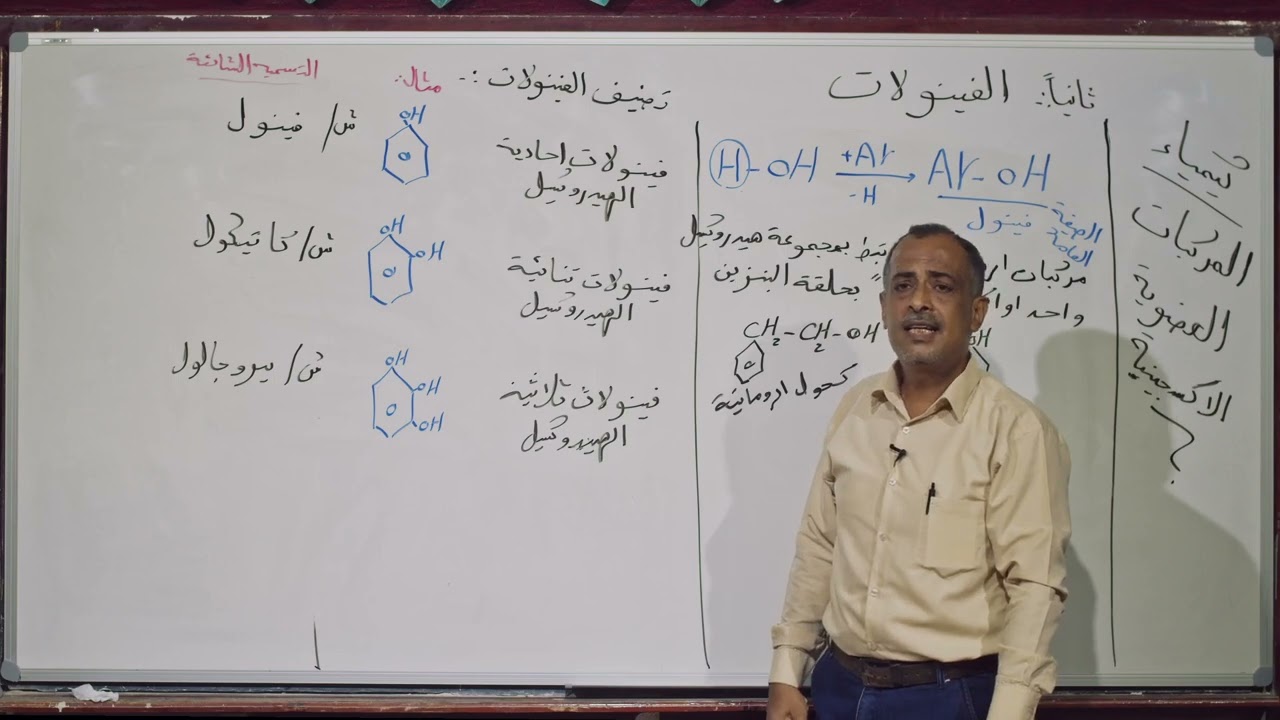 كيمياء
المركبات
العضوية
الاكسجينية
ثانياً: الفينولات
H - OH +Ar -H Ar - OH
الصفة العامة فينول
مركبات تبط بمجموعة هيدروكسيل
واحد او بحلقة البنزين
CH2 - CH2 - OH
OH
كحول اروماتية
تصنيف الفينولات :-
مثال:
التسمية الشائعة
فينولات احادية
الهيدروكسيل
OH
ش/ فينول
فينولات ثنائية
الهيدروكسيل
OH
OH
ش/ كاتيكول
فينولات ثلاثية
الهيدروكسيل
OH
OH
OH
ش/ بيروجالول